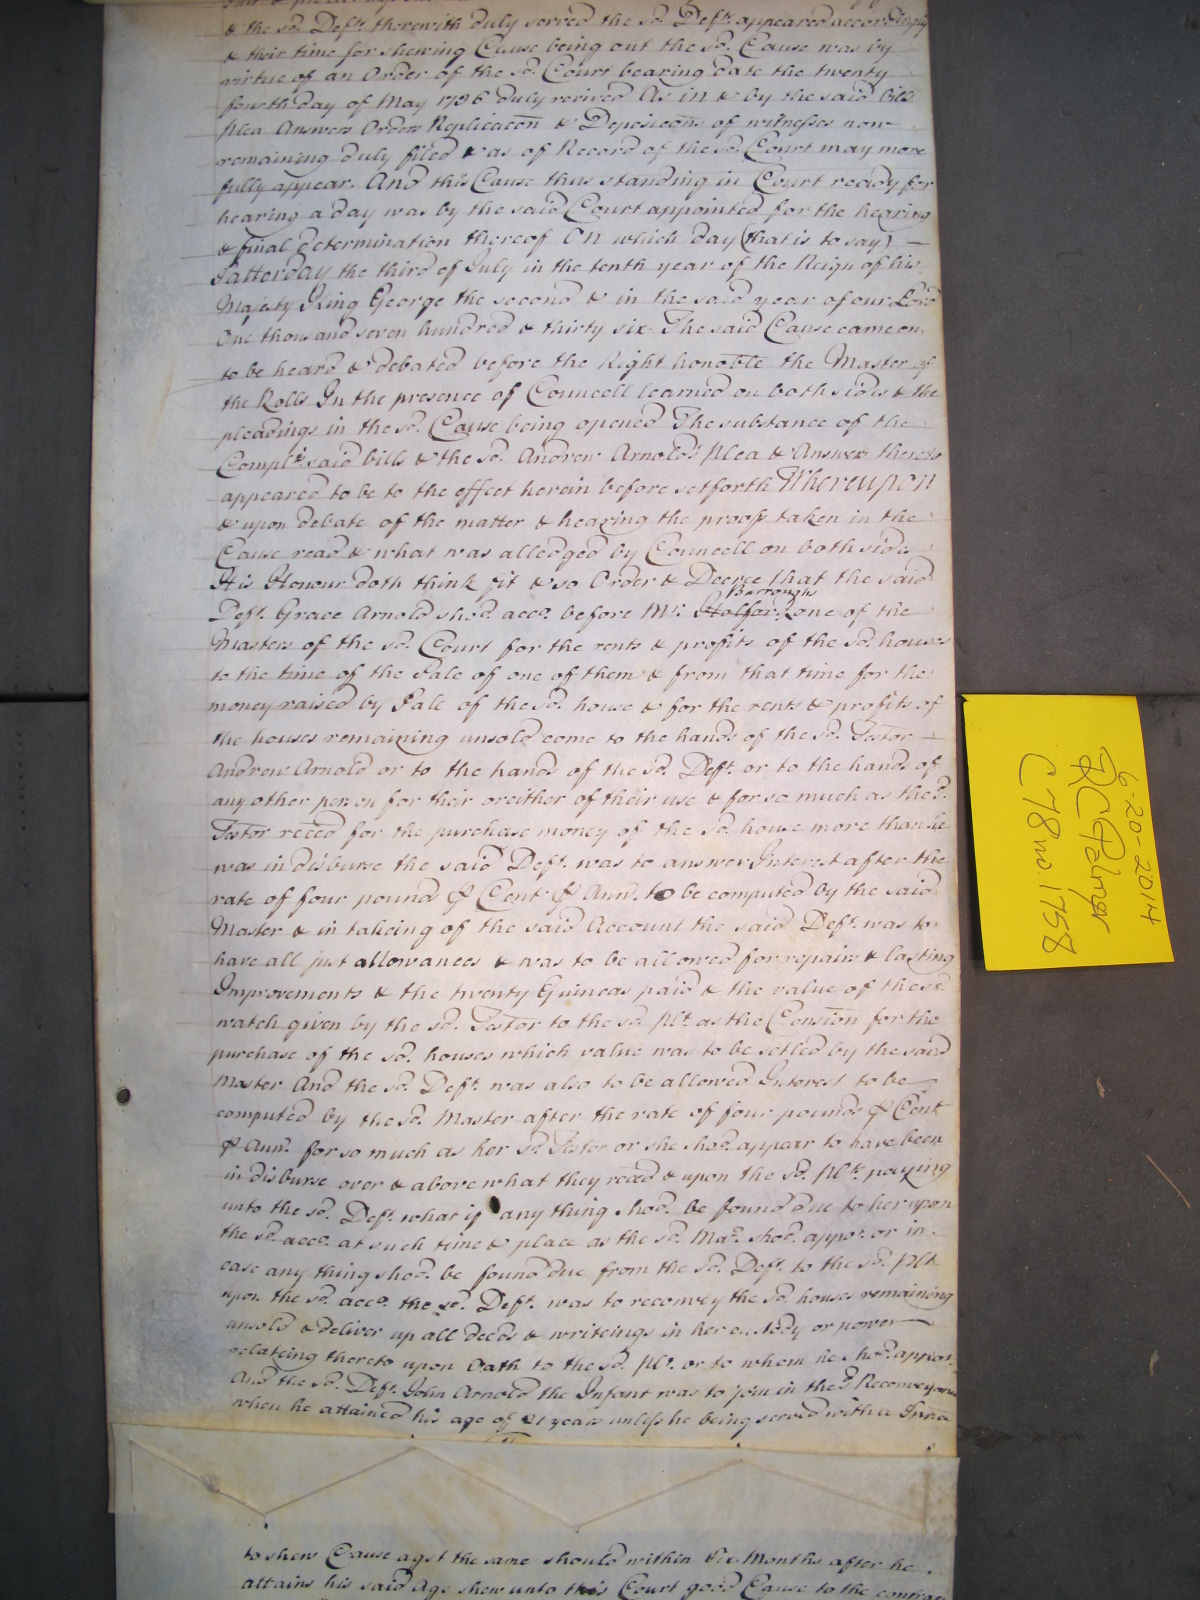 & the sd. Defts. therewith duly served the sd. Defts. appeared accordingly
& their time for shewing Cause being out the sd. Cause was by
virtue of an Order of the sd. Court bearing date the twenty
fourth day of May 1736 duly revived As in & by the said bill
Plea Answers Orders Replicacon & Deposicons of witnesses now
remaining duly filed & as of Record of the sd. Court may more
fully appear. And this Cause thus standing in Court ready for
hearing a day was by the said Court appointed for the hearing
& final determination thereof On which day (that is to say)
Satterday the third of July in the tenth year of the Reign of his
Majesty King George the second & in the said year of our Lord
One thousand seven hundred & thirty six The said Cause came on
to be heard & debated before the Right honoble the Master of
the Rolls In the presence of Councell learned on both sides & the
pleadings in the sd. Cause being opened The substance of the
Complts. said bill & the sd. Andrew Arnold's Plea & Answer thereto
appeared to be to the effect herein before setforth Whereupon
& upon debate of the matter & hearing the proofs taken in the
Cause read & what was alledged by Councell on both sides
His Honour doth think fit & so Order & Decree that the said
Burrough
Deft. Grace Arnold shod. acco. before Mr. Holford one of the
Masters of the sd. Court for the rents & profits of the sd. houses
to the time of the Sale of one of them & from that time for the
money raised by Sale of the sd. house & for the rents & profits of
the houses remaining unsold come to the hands of the sd. Testor
Andrew Arnold or to the hands of the sd. Deft. or to the hands of
any other person for their or either of their use & for so much as the sd.
Testor reced for the purchase money of the sd. house more than he
was in disburse the said Deft. was to answer Interest after the
rate of four pound P Cent P Ann. to be computed by the said
Master & in takeing of the said Account the said Deft. was to
have all just allowances & was to be allowed for repairs & lasting
Improvements & the twenty Guineas paid & the value of the sd.
watch given by the sd. Testor to the sd. Plt. as the Consion for the
purchase of the sd. houses which value was to be setled by the said
Master And the sd. Deft. was also to be allowed Interest to be
computed by the sd. Master after the rate of four pounds P Cent
P Ann. for so much as her sd. Testor or she shod. appear to have been
in disburse over & above what they reced & upon the sd. Plt. paying
unto the sd. Deft. what if any thing shod. be found due to her upon
the sd. acco. at such time & place as the sd. Mar. shod. appot. or in
case any thing shod. be found due from the sd. Deft. to the sd. Plt.
upon the sd. acco. the sd. Deft. was to reconvey the sd. houses remaining
unsold & deliver up all deeds & writeings in her custody or power
relateing thereto upon Oath to the sd. Plt. or to whom he shod. appot.
And the sd. Deft. John Arnold the Infant was to join in the sd. Reconveyance
when he attained his age of 21 years unless he being served with a
to shew Cause agst the same should within Six Months after he
attains his said Age shew unto this Court good Cause to the contrary
6-20-2014
RC Palmer
C 78 no. 1758